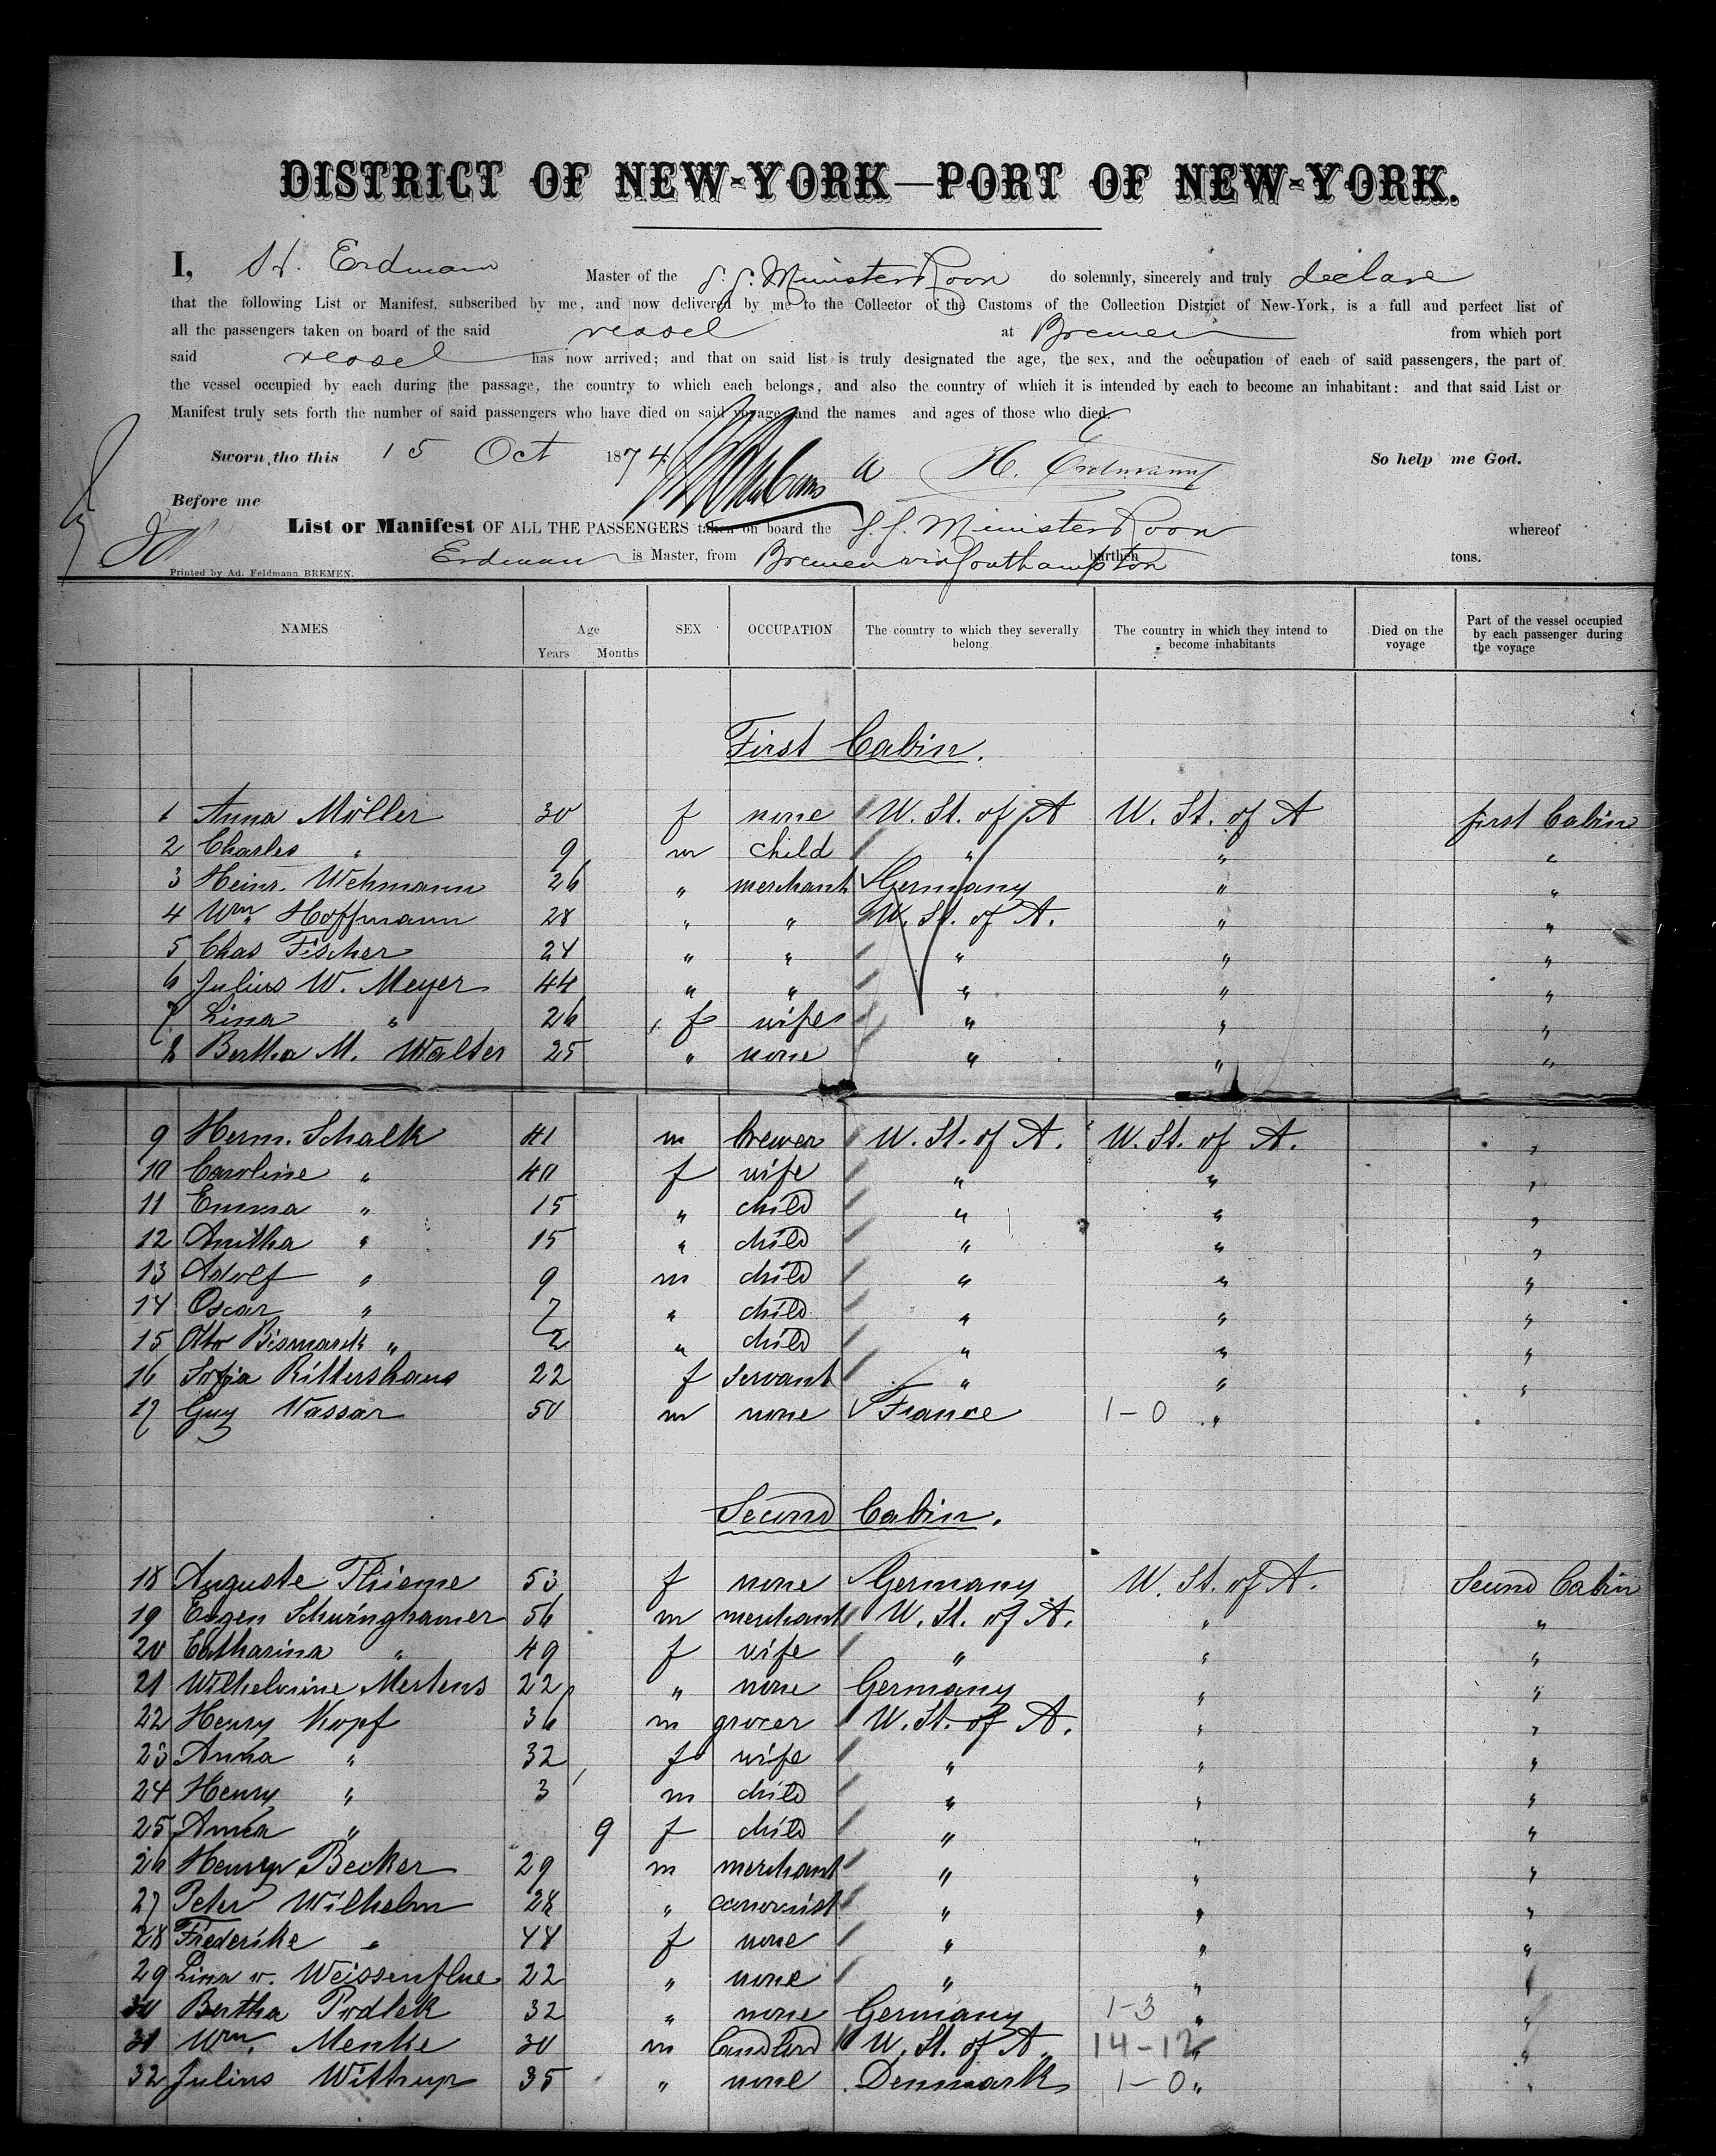 DISTRICT OF NEW-YORK—PORT OF NEW-YORK.
I, H. Erdmann Master of the S. S. Minister Roon do solemnly, sincerely and truly declare
that the following List or Manifest, subscribed by me, and now delivered by me to the Collector of the Customs of the Collection District of New-York, is a full and perfect list of
all the passengers taken on board of the said vessel at Bremen from which port
said vessel has now arrived; and that on said list is truly designated the age, the sex, and the occupation of each of said passengers, the part of
the vessel occupied by each during the passage, the country to which each belongs, and also the country of which it is intended by each to become an inhabitant: and that said List or
Manifest truly sets forth the number of said passengers who have died on said voyage and the names and ages of those who died.
Sworn tho this 15 Oct 1874 H. Erdmann So help me God.
Before me
List or Manifest OF ALL THE PASSENGERS taken on board the S. S. Minister Roon whereof
Erdmann is Master, from Bremen via Southampton burthen tons.
Printed by Ad. Feldmann BREMEN.
NAMES Age Years Months SEX OCCUPATION The country to which they severally belong The country in which they intend to become inhabitants Died on the voyage Part of the vessel occupied by each passenger during the voyage
First Cabin.
1 Anna Möller 30 f none U. St. of A U. St. of A first Cabin
2 Charles " 9 m child " " "
3 Heinr. Wehmann 26 " merchant Germany " "
4 Wm. Hoffmann 28 " " U. St. of A. " "
5 Chas Fischer 24 " " " " "
6 Julius W. Meyer 44 " " " " "
7 Lina " 26 f wife " " "
8 Bertha M. Walter 25 " none " " "
9 Herm. Schalk 41 m brewer U. St. of A. U. St. of A. "
10 Caroline " 40 f wife " " "
11 Emma " 15 " child " " "
12 Anitha " 15 " child " " "
13 Adolf " 9 m child " " "
14 Oscar " 7 " child " " "
15 Otto Bismarck " 2 " child " " "
16 Sofia Rittershaus 22 f servant " " "
17 Guy Vassar 50 m none France 1-0 " "
Second Cabin.
18 Auguste Thieme 53 f none Germany U. St. of A. Second Cabin
19 Eugen Schwinghamer 56 m merchant U. St. of A. " "
20 Catharina " 49 f wife " " "
21 Wilhelmine Mertens 22 " none Germany " "
22 Henry Kopf 36 m grocer U. St. of A. " "
23 Anna " 32 f wife " " "
24 Henry " 3 m child " " "
25 Anna " 9 f child " " "
26 Henry Becker 29 m merchant " " "
27 Peter Wilhelm 28 " " " "
28 Frederike " 44 f none " " "
29 Lina v. Weissenflue 22 " none " " "
30 Bertha Podlek 32 " none Germany 1-3 " "
31 Wm. Menke 30 m Landlord U. St. of A. 14-12 " "
32 Julius Withup 35 " none Denmark 1-0 " "